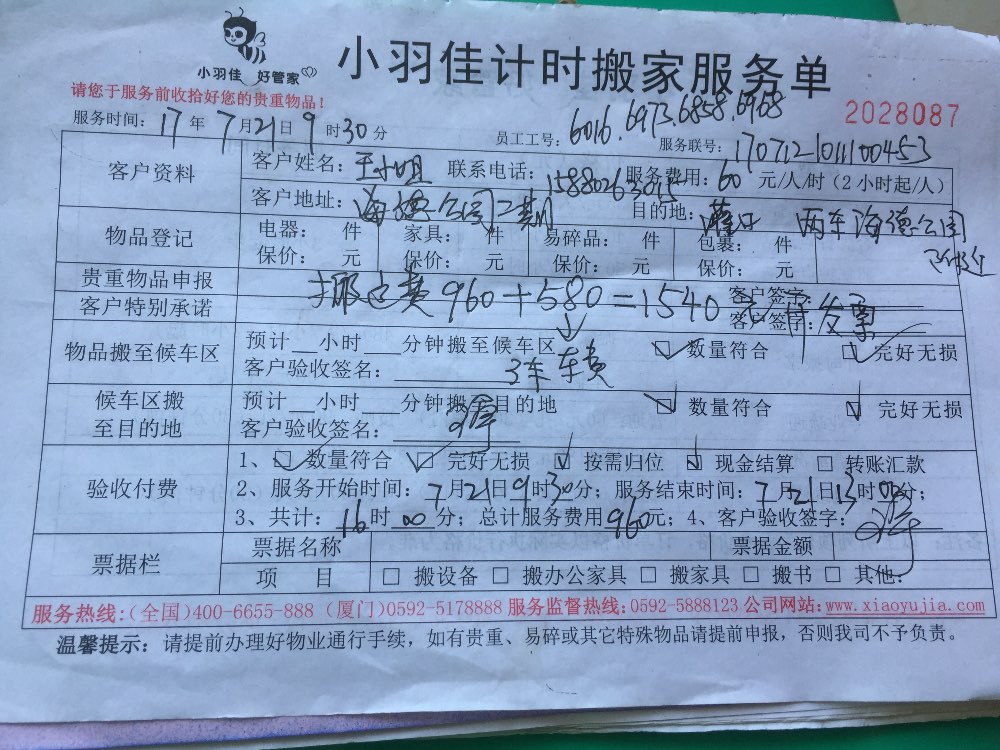 小羽佳 好管家
小羽佳计时搬家服务单
请您于服务前收拾好您的贵重物品！
2028087
服务时间：17年7月21日9时30分 员工工号：6016.6973.6858.6968 服务联号：170712-1011100453
客户资料 客户姓名：王小姐 联系电话：15880263015 服务费用：60元/人/时（2小时起/人）
客户地址：海德公园二期 目的地：灌口 两车海德公园附近
物品登记 电器： 件 家具： 件 易碎品： 件 包裹： 件
保价： 元 保价： 元 保价： 元 保价： 元
贵重物品申报 客户签字
客户特别承诺 搬运费960+580=1540元 发票 客户签字：
物品搬至候车区 预计__小时___分钟搬至候车区 ☑ 数量符合 ☑ 完好无损
客户验收签名： 3车车费
候车区搬至目的地 预计__小时___分钟搬至目的地 ☑ 数量符合 ☑ 完好无损
客户验收签名：
验收付费 1、☑ 数量符合 ☑ 完好无损 ☑ 按需归位 ☑ 现金结算 □ 转账汇款
2、服务开始时间：7月21日9时30分；服务结束时间：7月21日13时00分；
3、共计：16时00分；总计服务费用960元；4、客户验收签字：
票据栏 票据名称 票据金额
项 目 □ 搬设备 □ 搬办公家具 □ 搬家具 □ 搬书 □ 其他：
服务热线：(全国)400-6655-888 (厦门)0592-5178888 服务监督热线：0592-5888123 公司网站：www.xiaoyujia.com
温馨提示：请提前办理好物业通行手续，如有贵重、易碎或其它特殊物品请提前申报，否则我司不予负责。